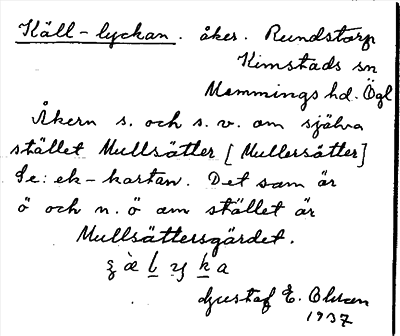 Käll-lyckan. åker. Rundstorp
Kimstads sn
Memmings hd. Ögl
Åkern s. och s. v. om själva
stället Mullsätter [Mullersätter]
Se: ek-kartan. Det som är
ö och n. ö om stället är
Mullsättersgärdet.
Gustaf E. Olsson
1937